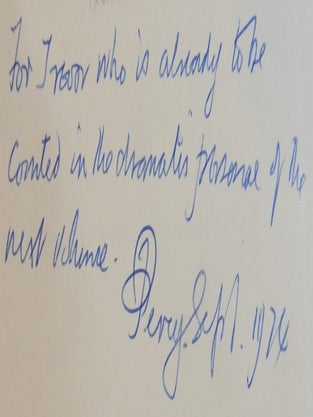 For Trevor who is already to be
counted in the dramatis personae of the
next volume.
Percy. Sept. 1974